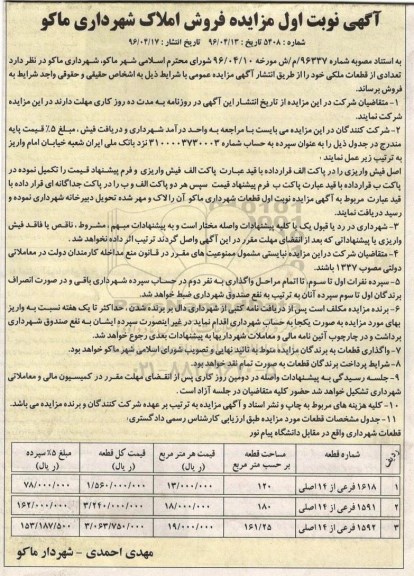 آگهی نوبت اول مزایده فروش املاک شهرداری ماکو
شماره : ۵۴۰۸ تاریخ : ۹۶/۰۴/۱۳ تاریخ انتشار : ۹۶/۰۴/۱۷
به استناد مصوبه شماره ۹۶۳۳۷/م/ش مورخه ۹۶/۰۴/۱۰ شورای محترم اسلامی شهر ماکو، شهرداری ماکو در نظر دارد
تعدادی از قطعات ملکی خود را از طریق انتشار آگهی مزایده عمومی با شرایط ذیل به اشخاص حقیقی و حقوقی واجد شرایط به
فروش برساند.
۱- متقاضیان شرکت در این مزایده از تاریخ انتشار این آگهی در روزنامه به مدت ده روز کاری مهلت دارند در این مزایده
شرکت نمایند.
۲- شرکت کنندگان در این مزایده می بایست با مراجعه به واحد درآمد شهرداری و دریافت فیش ، مبلغ ۵٪ قیمت پایه
مندرج در جدول ذیل را به عنوان سپرده به حساب شماره ۳۱۰۰۰۰۳۷۳۰۰۰۳ نزد بانک ملی ایران شعبه خیابان امام واریز
به ترتیب زیر عمل نمایند ؛
اصل فیش واریزی را در پاکت الف قرارداده با قید عبارت پاکت الف فیش واریزی و فرم پیشنهاد قیمت را تکمیل نموده در
پاکت ب قرارداده با قید عبارت پاکت ب فرم پیشنهاد قیمت سپس هر دو پاکت الف و ب را در پاکت جداگانه ای قرار داده با
قید عبارت مربوط به آگهی مزایده نوبت اول قطعات شهرداری ماکو آن را لاک و مهر شده تحویل دبیرخانه شهرداری نموده و
رسید دریافت نمایند.
۳- شهرداری در رد یا قبول یک یا کلیه پیشنهادات واصله مختار است و به پیشنهادات مبهم ، مشروط ، ناقص یا فاقد فیش
واریزی یا پیشنهاداتی که بعد از انقضای مهلت مقرر در این آگهی واصل گردند ترتیب اثر داده نخواهد شد.
۴- متقاضیان شرکت در این مزایده نبایستی مشمول ممنوعیت های مقرر در قانون منع مداخله کارمندان دولت در معاملاتی
دولتی مصوب ۱۳۳۷ باشند.
۵- سپرده نفرات اول تا سوم، تا اتمام مراحل واگذاری به نفر دوم در حساب سپرده شهرداری باقی و در صورت انصراف
برندگان اول تا سوم سپرده آنان به ترتیب به نفع صندوق شهرداری ضبط خواهد شد.
۶- برنده مزایده مکلف است پس از دریافت نامه کتبی از شهرداری دال بر برنده شدن ، حداکثر تا یک هفته نسبت به واریز
بهای مورد مزایده به صورت یکجا به حساب شهرداری اقدام نماید در غیر اینصورت سپرده ایشان به نفع صندوق شهرداری
برداشت و در چارچوب آئین نامه مالی و معاملات شهرداریها به پیشنهادات بعدی رجوع خواهد شد.
۷- واگذاری قطعات به برندگان مزایده منوط به تائید نهایی و تصویب شورای اسلامی شهر ماکو خواهد بود.
۸- شرایط پرداخت برندگان قطعات به صورت تمام نقد خواهد بود.
۹- جلسه رسیدگی به پیشنهادات واصله در دومین روز کاری پس از انقضای مهلت مقرر در کمیسیون مالی و معاملاتی
شهرداری تشکیل خواهد شد حضور کلیه متقاضیان در جلسه آزاد است .
۱۰- کلیه هزینه های مربوط به چاپ و نشر اسناد و آگهی مزایده به ترتیب بر عهده شرکت کنندگان و برنده مزایده می باشد.
۱۱- جدول مشخصات قطعات مورد مزایده طبق ارزیابی کارشناس رسمی دادگستری؛
قطعات شهرداری واقع در مقابل دانشگاه پیام نور
ردیف شماره قطعه مساحت قطعه بر حسب متر مربع قیمت هر متر مربع (ر یال) قیمت کل قطعه (ر یال) مبلغ ۵٪ سپرده (ر یال)
۱ ۱۶۱۸ فرعی از ۱۴ اصلی ۱۲۰ ۱۳/۰۰۰/۰۰۰ ۱/۵۶۰/۰۰۰/۰۰۰ ۷۸/۰۰۰/۰۰۰
۲ ۱۵۹۱ فرعی از ۱۴ اصلی ۱۸۰ ۱۸/۰۰۰/۰۰۰ ۳/۲۴۰/۰۰۰/۰۰۰ ۱۶۲/۰۰۰/۰۰۰
۳ ۱۵۹۲ فرعی از ۱۴ اصلی ۱۶۱/۲۵ ۱۹/۰۰۰/۰۰۰ ۳/۰۶۳/۷۵۰/۰۰۰ ۱۵۳/۱۸۷/۵۰۰
مهدی احمدی - شهردار ماکو